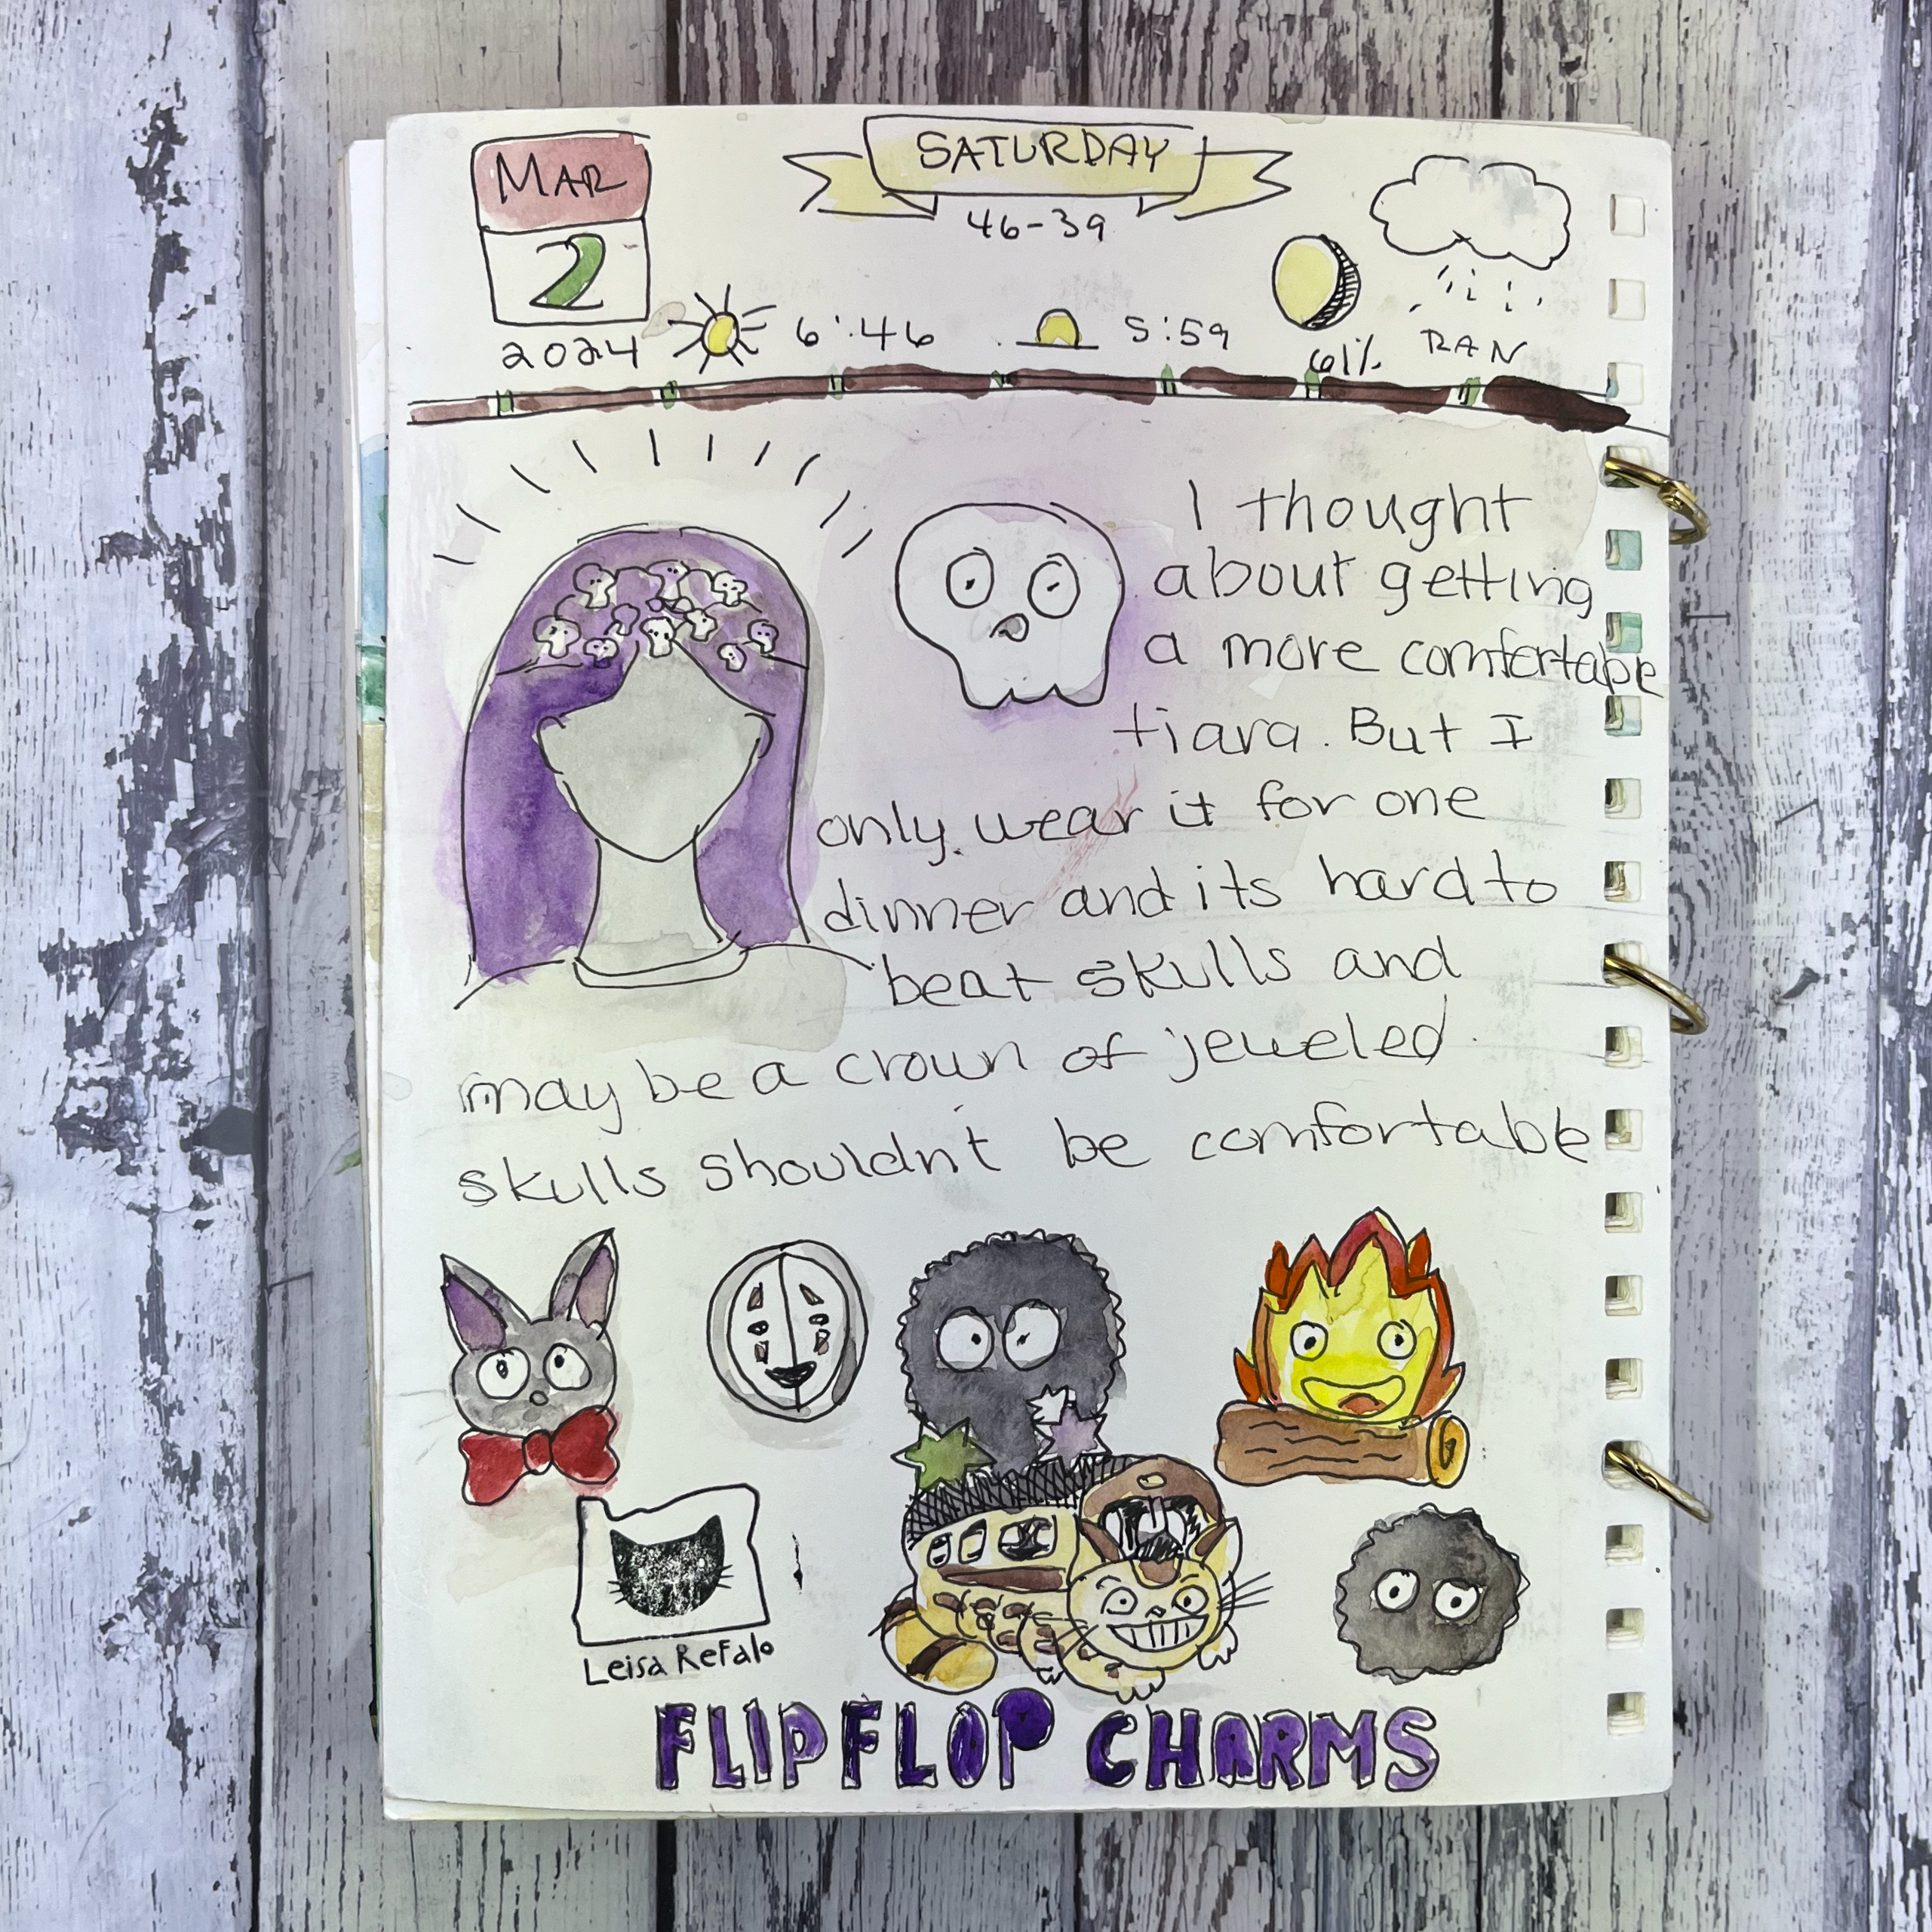 MAR
2
2024
SATURDAY
46-39
6:46
5:59
61%
RAN
I thought
about getting
a more comfertabe
tiara. But I
only wear it for one
dinner and its hard to
beat skulls and
may be a crown of jeweled
skulls shouldnt be comfortable
Leisa Refalo
FLIPFLOP CHARMS